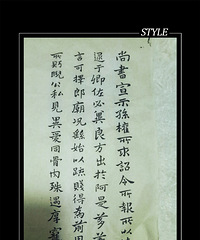 STYLE
尚書宣示孫權所求詔令所報所以
逮于卿佐必冀良方出於阿是芻蕘
言可擇郎廟况繇始以疏賤得為前恩
所眄公私見異愛同骨肉殊遇厚寵